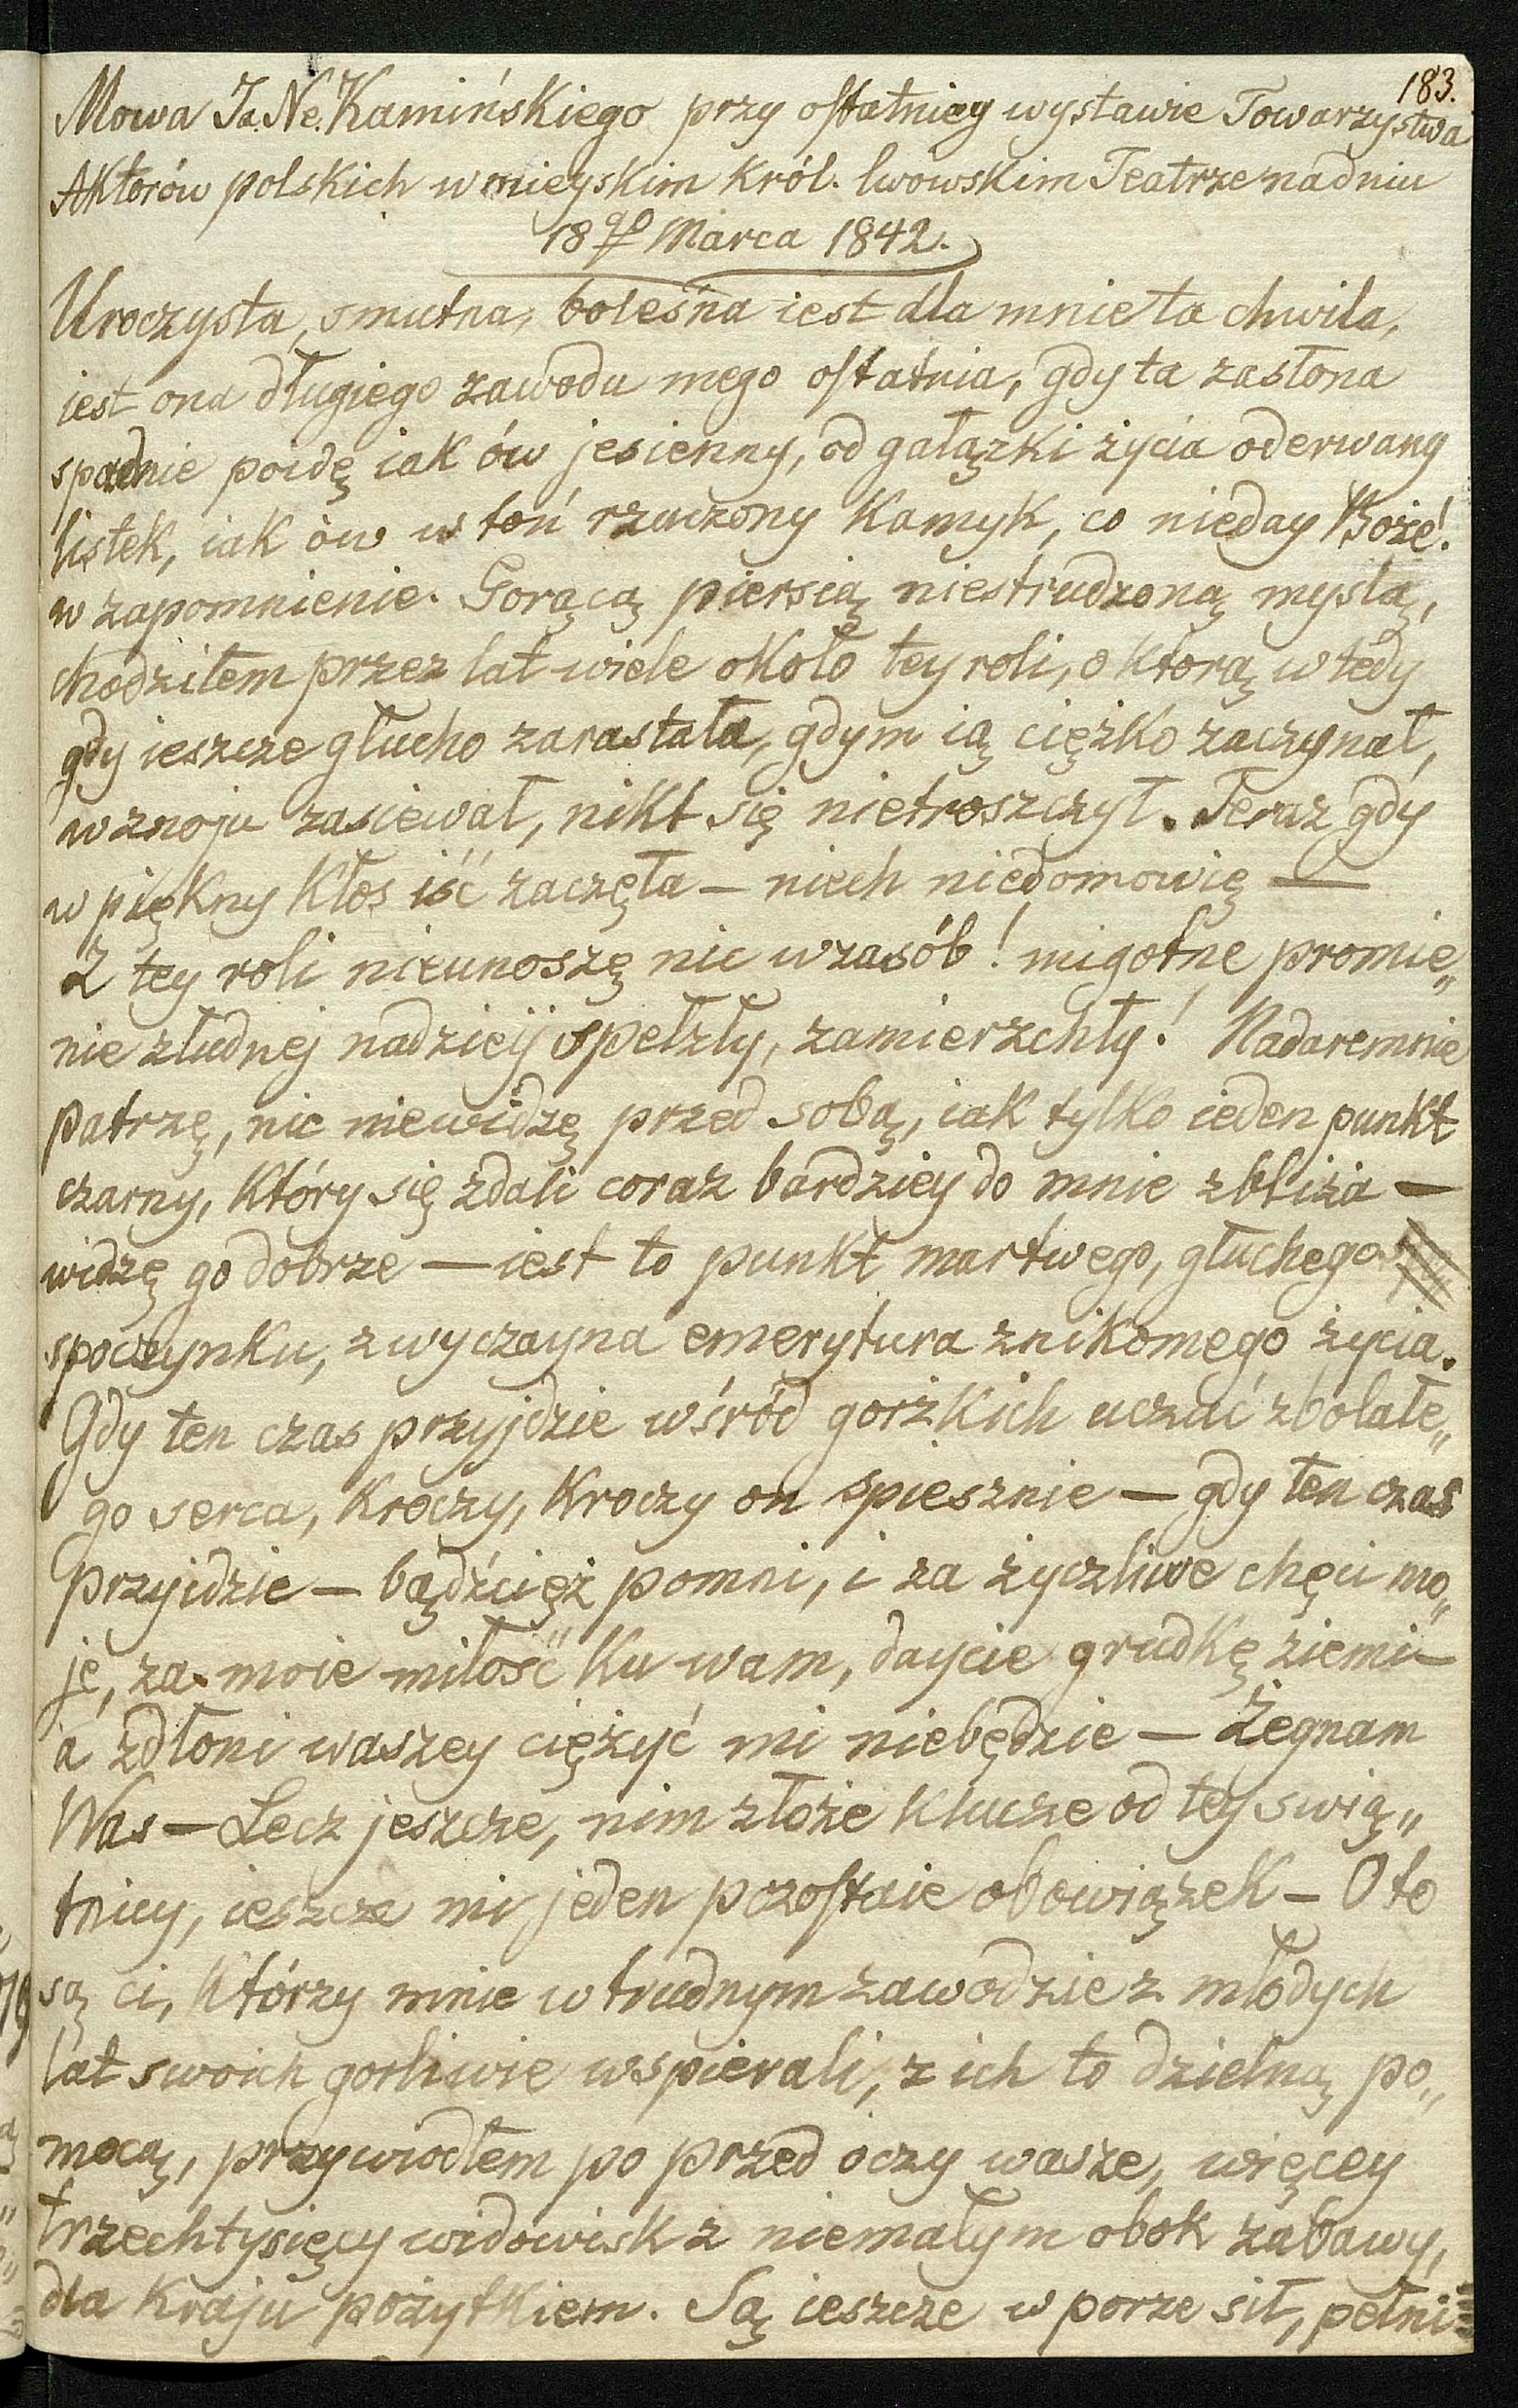 183.
Mowa Ja. Ne. Kamińskiego przy ostatniey wystawie Towarzystwa
Aktorów polskich w mieyskim Król. lwowskim Teatrze na dniu
18go Marca 1842.
Uroczysta, smutna, boleśna iest dla mnie ta chwila,
iest ona długiego zawodu mego ostatnia, gdy ta zasłona
spadnie poidę iak ów jesienny, od gałązki życia oderwany
listek, iak ów w toń rzucony Kamyk, co nieday Boże!
w zapomnienie. Gorącą piersią niestrudzoną myslą,
chodziłem przez lat wiele około tey roli, o którą w tedy
gdy ieszcze głucho zarastała, gdym ią ciężko zaczynał,
w znoju zasiewał, nikt się nietroszczył. Teraz gdy
w piękny Kłos iść zaczęła — niech niedomowię —
Z tey roli nieunoszę nic wzasób! migotne promie„
nie złudnej nadzieij spełzły, zamierzchły! Nadaremnie
patrzę, nic niewidzę przed sobą, iak tylko ieden punkt
czarny, Który się zdali coraz bardziey do mnie zbliża —
widzę go dobrze — iest to punkt martwego, głuchego
spoczynku, zwyczayna emerytura znikomego życia.
Gdy ten czas przyjdzie wśród gorżkich uczuć zbolałe„
go serca, Kroczy, Kroczy on spiesznie — gdy ten czas
przyidzie — bądźcież pomni, i za życzliwe chęci mo„
je, za moie miłość Ku wam, daycie grudkę ziemi —
a zdłoni waszey ciężyć mi niebędzie — Żegnam
Was — Lecz jeszcze, nim złoże Klucze od tey świą„
tnicy, ieszcze mi jeden pozostaie obowiązek — Oto
są ci, Którzy mnie w trudnym zawodzie z młodych
lat swoich gorliwie wspierali, z ich to dzielną po„
mocą, przywiodłem po przed oczy wasze, więcey
trzechtysięcy widowisk z niemałym obok zabawy,
dla Kraju pożytkiem. Są ieszcze w porze sił, pełni